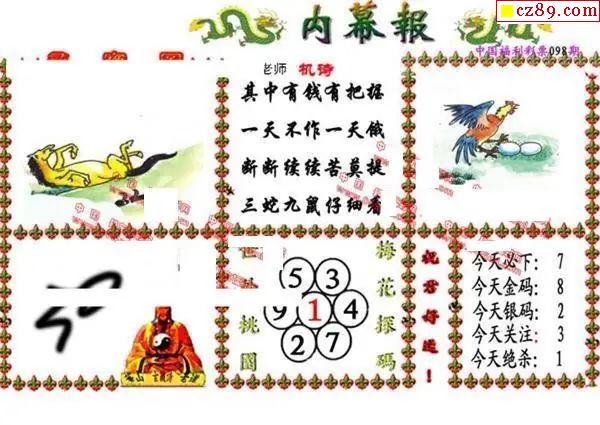 cz89.com
内幕報
中国福利彩票098期
老师 机琦
其中有钱有把握
一天不作一天饿
断断续续苦莫提
三蛇九鼠仔细看
梅花探码
桃园
5 3
9 1 4
2 7
祝君好运!
今天必下: 7
今天金码: 8
今天银码: 2
今天关注: 3
今天绝杀: 1